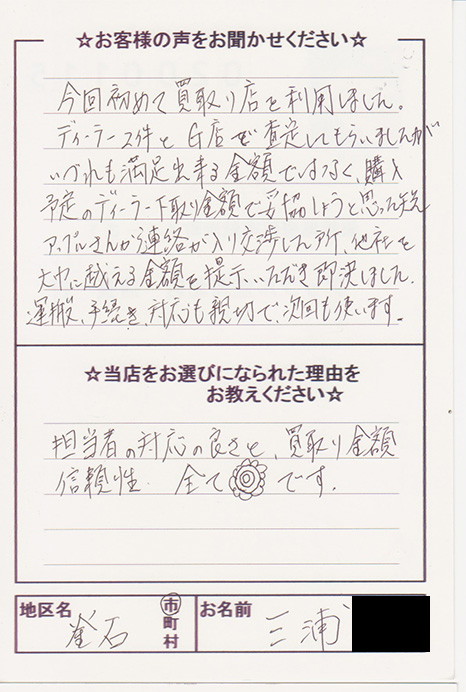 ☆お客様の声をお聞かせください☆
今回初めて買取り店を利用しました。
ディーラー2件とG店で査定してもらいましたが
いづれも満足出来る金額ではなく、購入
予定のディーラー下取り金額で妥協しようと思った矢先
アップルさんから連絡が入り交渉した所、他社を
大巾に越える金額を提示いただき即決しました。
運搬、手続き、対応も親切で、次回も使います。
☆当店をお選びになられた理由を
お教えください☆
担当者の対応の良さと、買取り金額
信頼性 全て◎です。
地区名 釜石 市町村 お名前 三浦